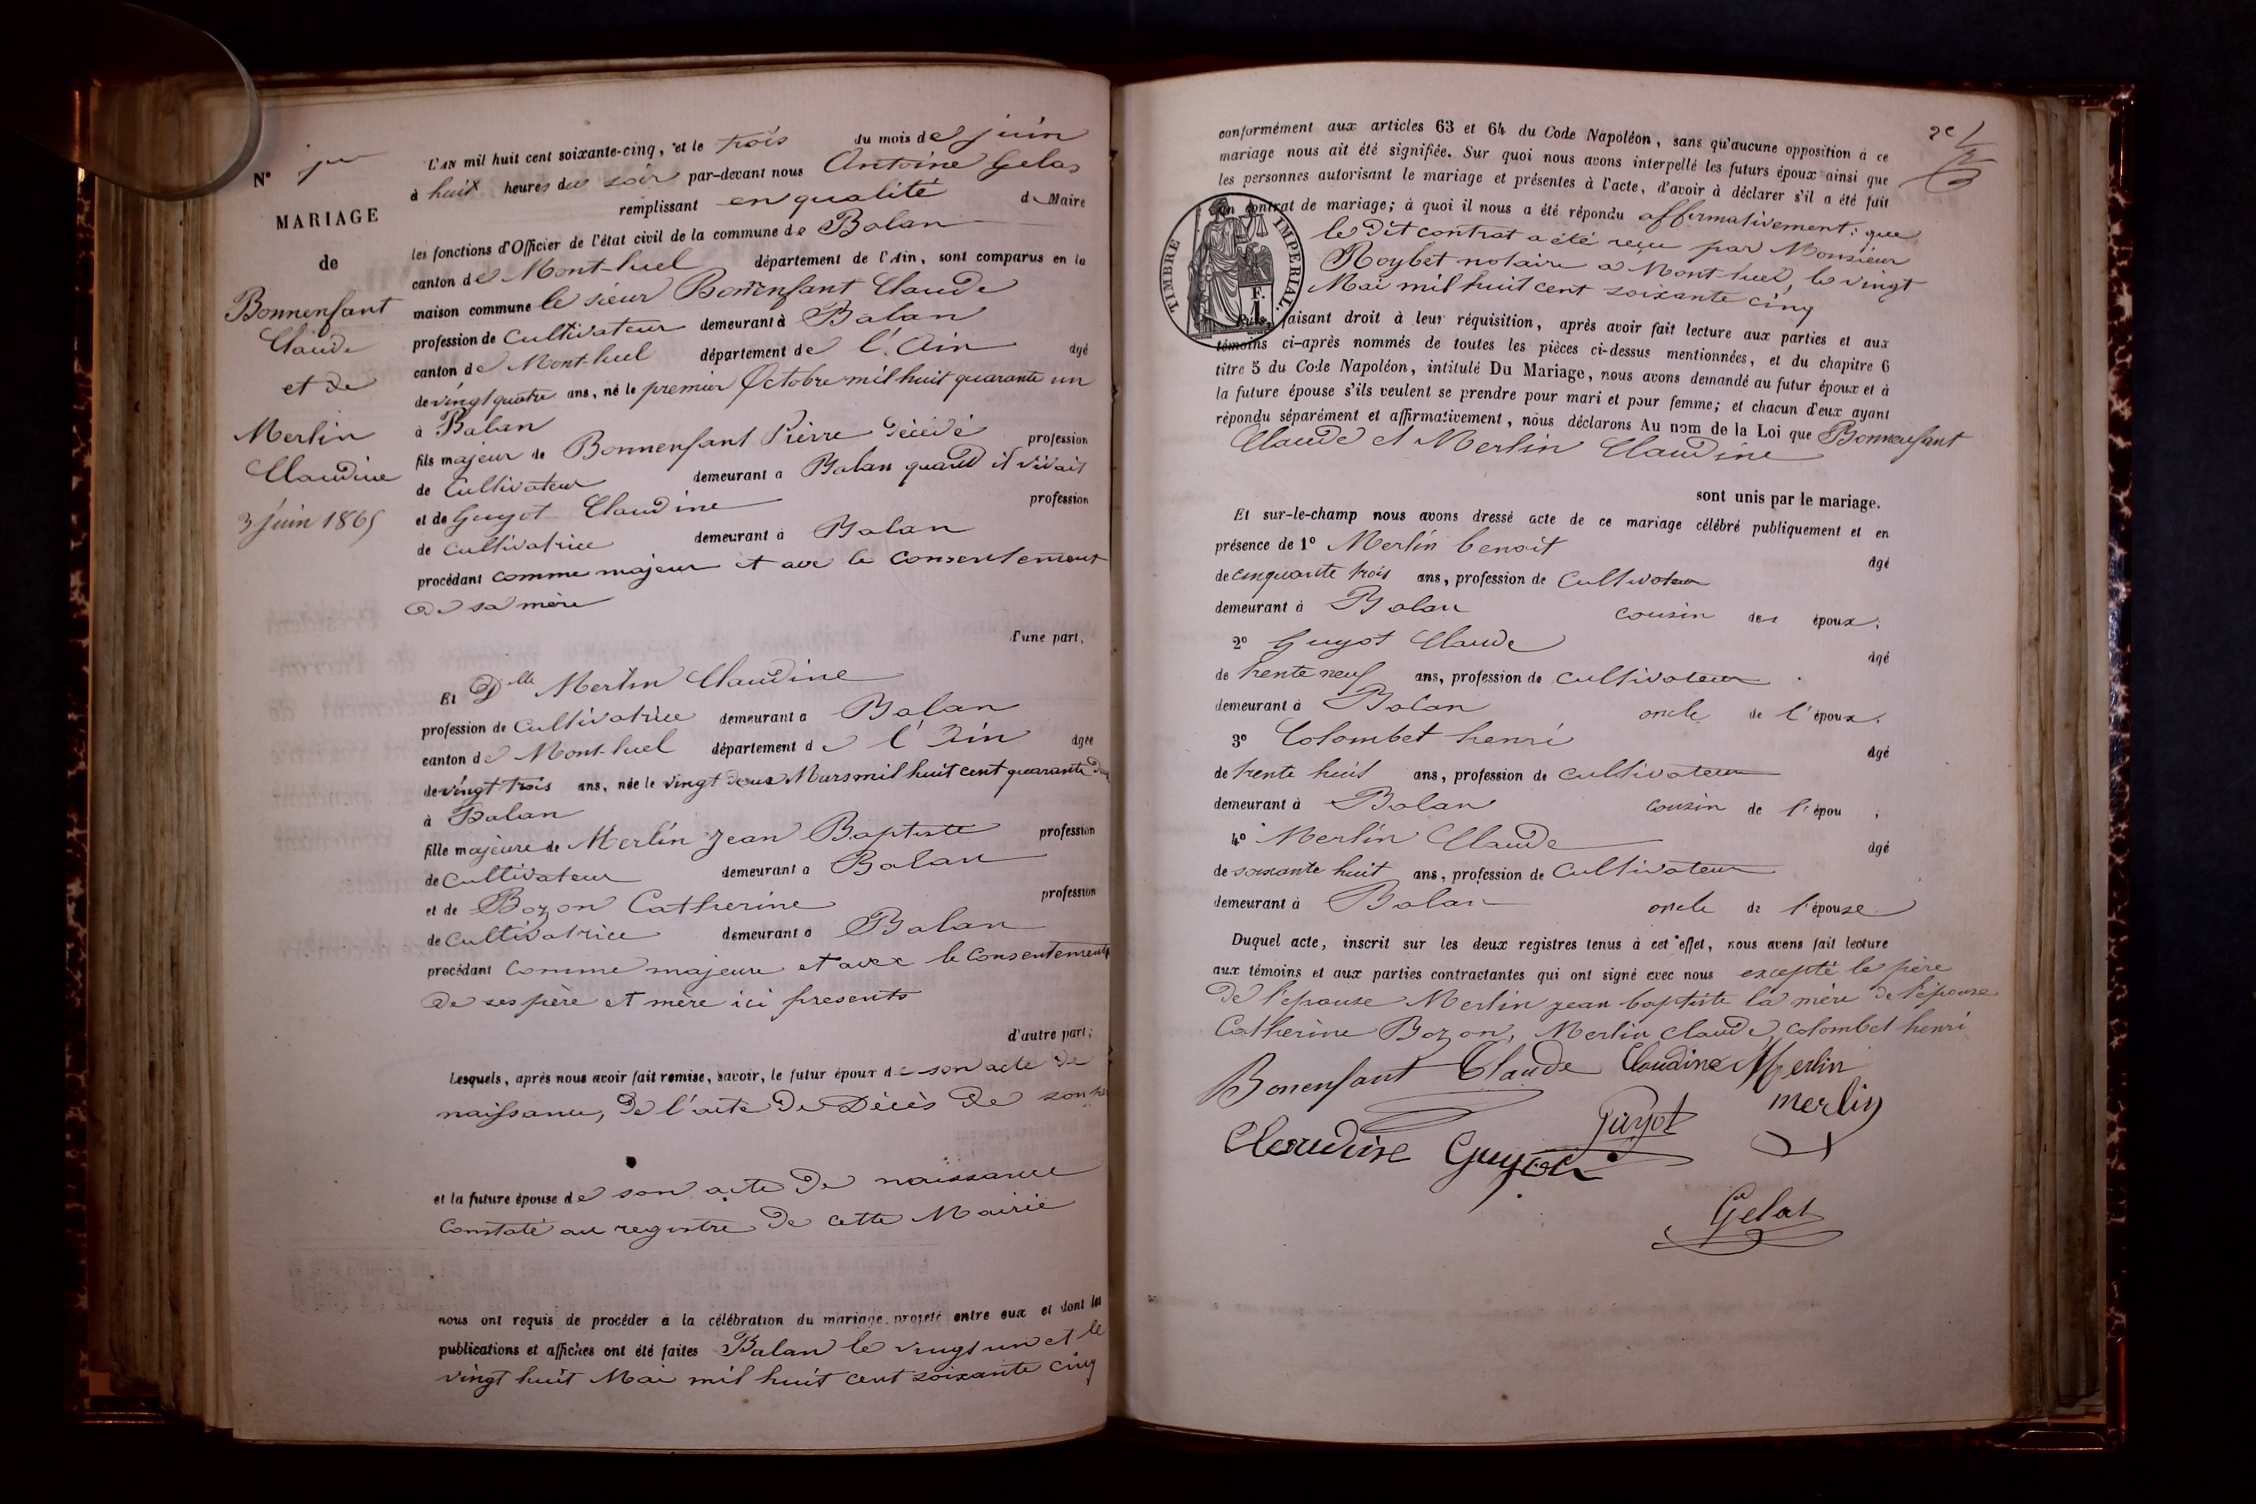 N° 1er
MARIAGE
de
Bonnenfant
Claude
et de
Merlin
Claudine
3 juin 1865
L'AN mil huit cent soixante-cinq, et le trois du mois de juin
à huit heures du soir par-devant nous Antoine Gelas
remplissant en qualité de Maire
les fonctions d'Officier de l'état civil de la commune de Balan
canton de Mont-luel département de l'Ain, sont comparus en la
maison commune le sieur Bonnenfant Claude
profession de Cultivateur demeurant à Balan
canton de Mont-luel département de l'Ain âgé
de vingt quatre ans, né le premier Octobre mil huit quarante un
à Balan
fils majeur de Bonnenfant Pierre Décédé profession
de Cultivateur demeurant à Balan quand il vivait
et de Guyot Claudine profession
de cultivatrice demeurant à Balan
procédant comme majeur et avec le consentement
de sa mère
d'une part,
Et Dlle Merlin Claudine
profession de cultivatrice demeurant à Balan
canton de Mont-luel département de l'Ain âgée
de vingt trois ans, née le vingt deux Mars mil huit cent quarante deux
à Balan
fille majeure de Merlin jean Baptiste profession
de cultivateur demeurant à Balan
et de Bozon Catherine profession
de cultivatrice demeurant à Balan
procédant comme majeure et avec le consentement
de ses père et mère ici presents
d'autre part;
Lesquels, après nous avoir fait remise, savoir, le futur époux de son acte de
naissance, de l'acte de Décès de son
et la future épouse de son acte de naissance
Constaté au registre de cette Mairie
nous ont requis de procéder à la célébration du mariage projeté entre eux et dont les
publications et affiches ont été faites Balan le vingt un et le
vingt huit Mai mil huit cent soixante cinq
conformément aux articles 63 et 64 du Code Napoléon, sans qu'aucune opposition à ce
mariage nous ait été signifiée. Sur quoi nous avons interpellé les futurs époux ainsi que
les personnes autorisant le mariage et présentes à l'acte, d'avoir à déclarer s'il a été fait
un contrat de mariage; à quoi il nous a été répondu affirmativement; que
le dit contrat a été reçu par Monsieur
Roybet notaire à Mont-luel, le vingt
Mai mil huit cent soixante cinq
TIMBRE IMPERIAL.
faisant droit à leur réquisition, après avoir fait lecture aux parties et aux
témoins ci-après nommés de toutes les pièces ci-dessus mentionnées, et du chapitre 6
titre 5 du Code Napoléon, intitulé Du Mariage, nous avons demandé au futur époux et à
la future épouse s'ils veulent se prendre pour mari et pour femme; et chacun d'eux ayant
répondu séparément et affirmativement, nous déclarons Au nom de la Loi que Bonnenfant
Claude et Merlin Claudine
sont unis par le mariage.
Et sur-le-champ nous avons dressé acte de ce mariage célébré publiquement et en
présence de 1° Merlin benoit âgé
de cinquante trois ans, profession de Cultivateur
demeurant à Balan cousin des époux;
2° Guyot Claude âgé
de trente neuf ans, profession de cultivateur
demeurant à Balan oncle de l'époux;
3° Colombet henri âgé
de trente huit ans, profession de cultivateur
demeurant à Balan cousin de l'épou ;
4° Merlin Claude âgé
de soixante huit ans, profession de Cultivateur
demeurant à Balan oncle de l'épouse
Duquel acte, inscrit sur les deux registres tenus à cet effet, nous avons fait lecture
aux témoins et aux parties contractantes qui ont signé avec nous excepté le père
De l'epouse Merlin jean baptiste la mère de l'épouse
Catherine Bozon, Merlin claude, colombet henri
Bonenfant Claude Claudine Merlin
Guyot merlin
Claudine Guyot
Gelas